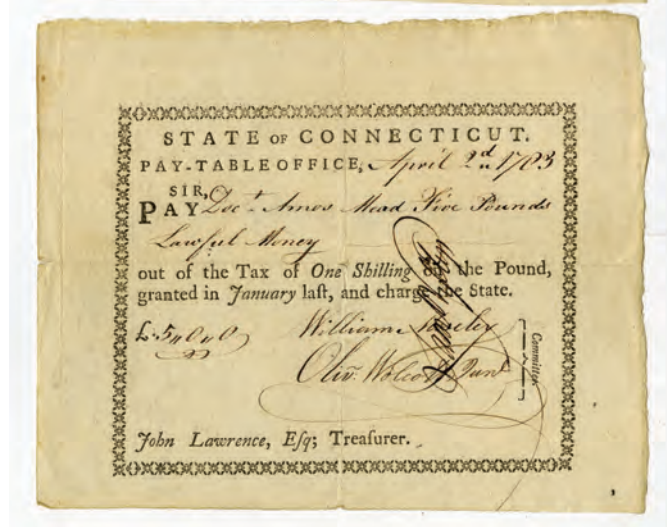 STATE OF CONNECTICUT.
PAY-TABLE OFFICE, April 2d 1783
SIR,
PAY Doct. Amos Mead Five Pounds
Lawful Money
out of the Tax of One Shilling on the Pound,
granted in January laſt, and charge the State.
£ 5 " 0 " 0
William Moseley
Oliv. Wolcott Junr
Committee
John Lawrence, Eſq; Treaſurer.